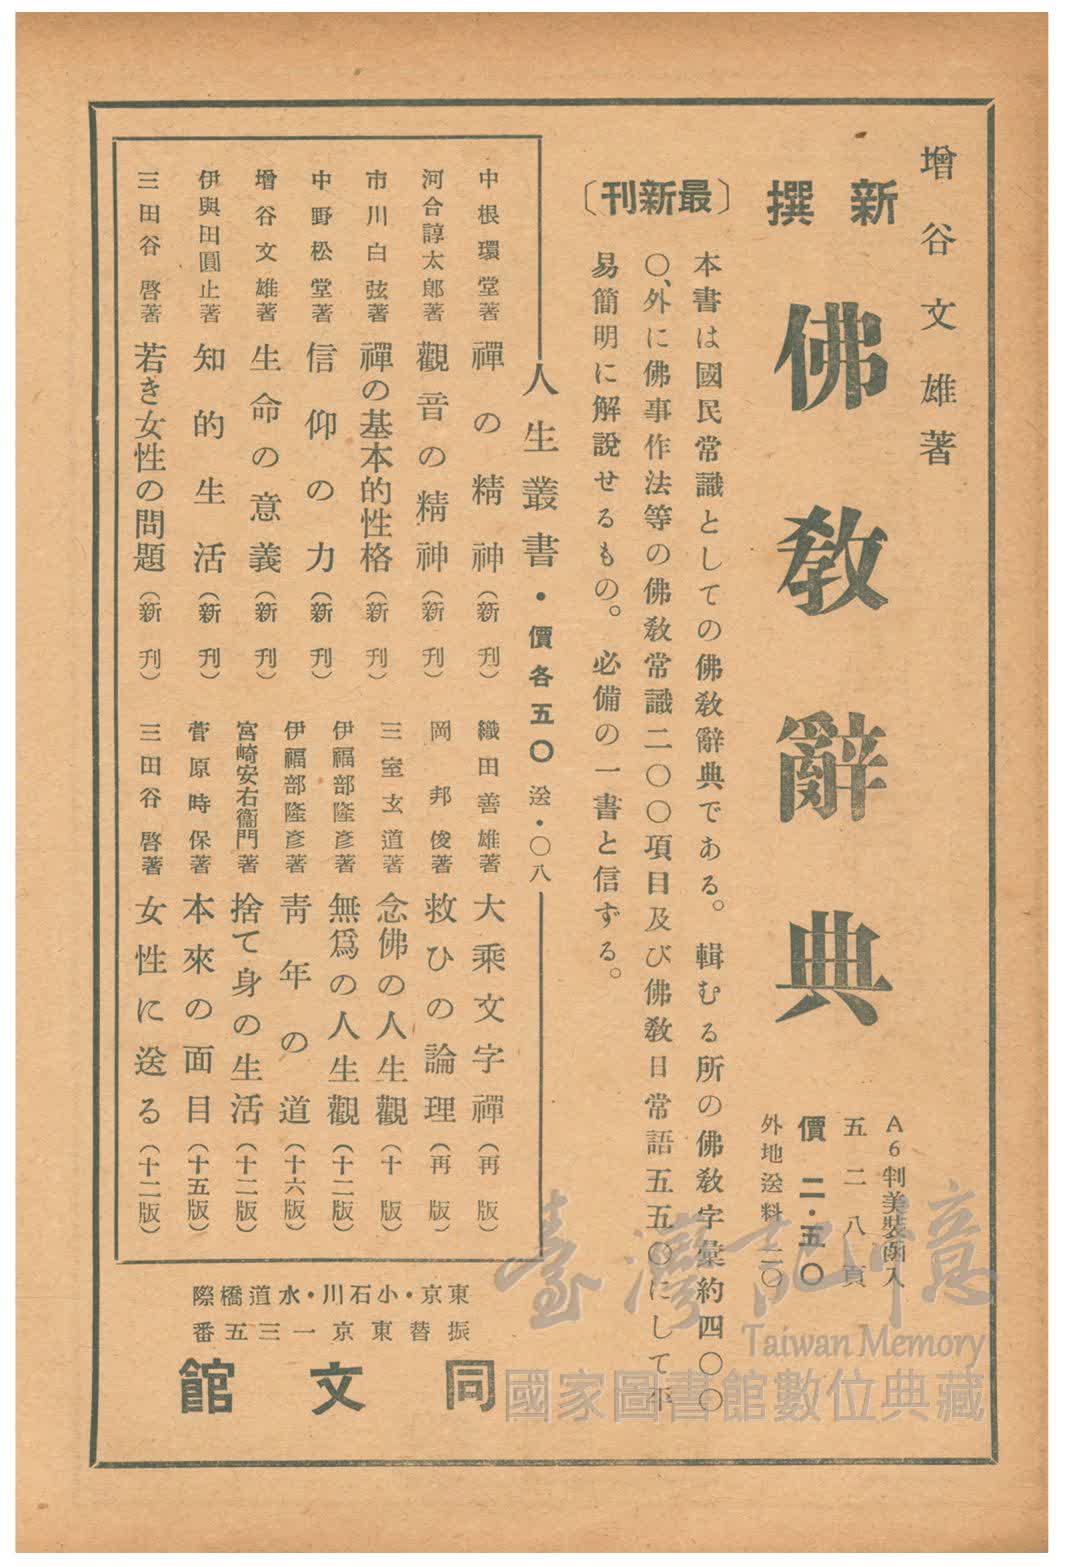 增谷文雄著
新撰
佛敎辭典
A6判美裝函入
五二八頁
價 二・五〇
外地送料 二〇
〔最新刊〕
本書は國民常識としての佛敎辭典である。輯むる所の佛敎字彙約四〇〇
〇、外に佛事作法等の佛敎常識二〇〇項目及び佛敎日常語五五〇にして平
易簡明に解說せるもの。必備の一書と信ずる。
人生叢書・價各五〇 送・〇八
中根環堂著 禪の精神(新刊)
河合諄太郎著 觀音の精神(新刊)
市川白弦著 禪の基本的性格(新刊)
中野松堂著 信仰の力(新刊)
增谷文雄著 生命の意義(新刊)
伊與田圓止著 知的生活(新刊)
三田谷啓著 若き女性の問題(新刊)
織田善雄著 大乘文字禪(再版)
岡邦俊著 救ひの論理(再版)
三室玄道著 念佛の人生觀(十版)
伊福部隆彥著 無爲の人生觀(十二版)
伊福部隆彥著 靑年の道(十六版)
宮崎安右衞門著 捨て身の生活(十二版)
菅原時保著 本來の面目(十五版)
三田谷啓著 女性に送る(十二版)
東京・小石川・水道橋際
振替東京一三五番
同文館
臺灣記憶
Taiwan Memory
國家圖書館數位典藏